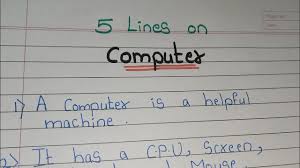 5 Lines on
Computer
1) A Computer is a helpful
machine.
2) It has a C.P.U, Screen,
Mouse